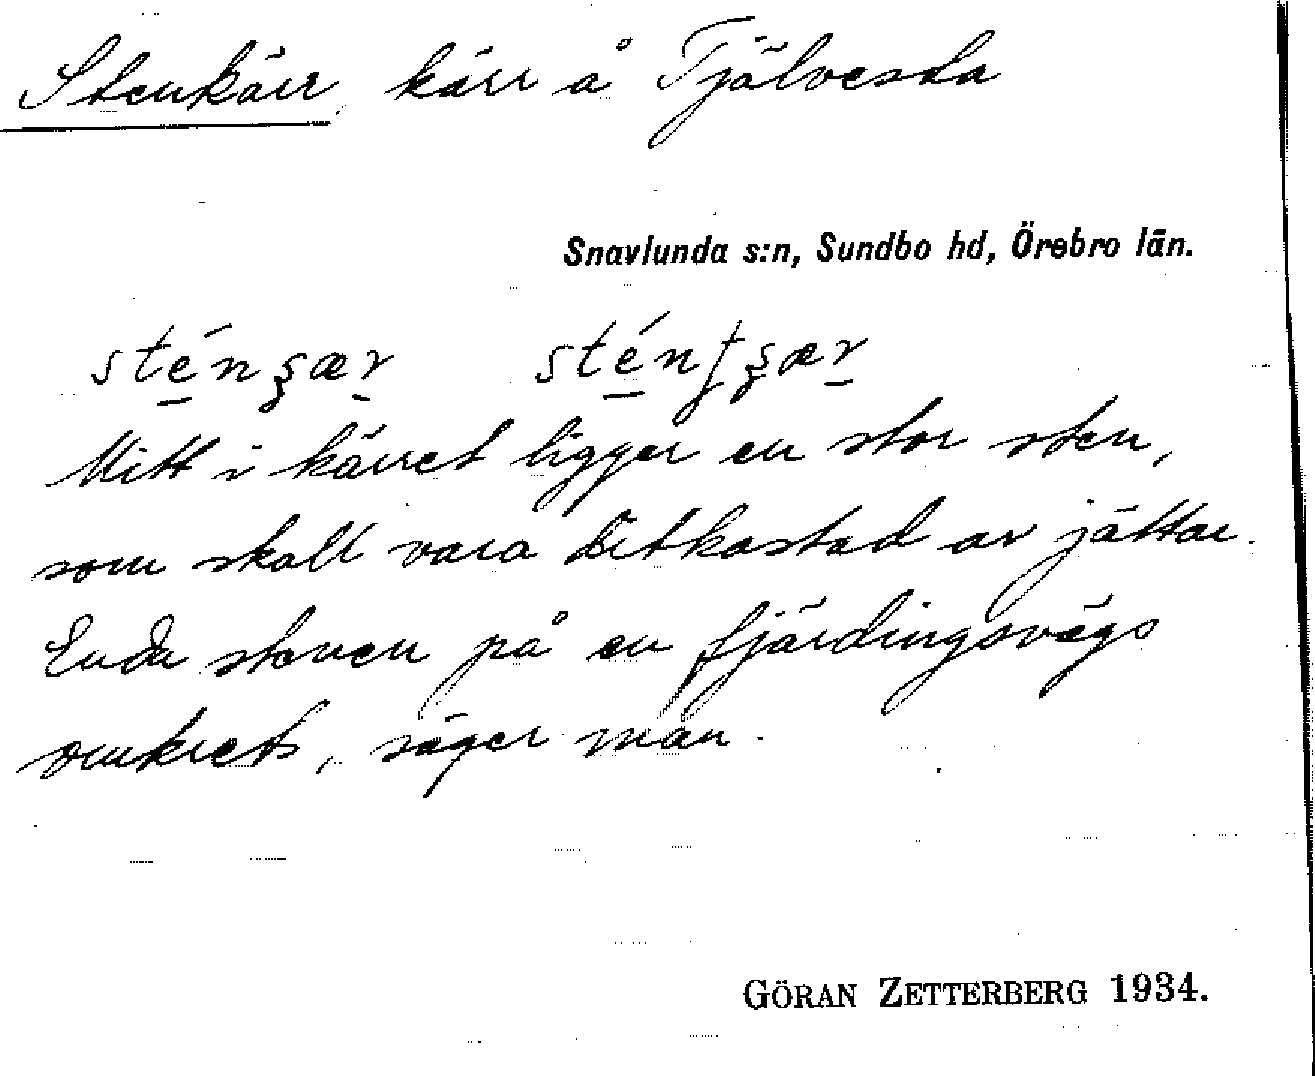 Stenkärr, kärr å Tjälvesta
Snavlunda s:n, Sundbo hd, Örebro län.
sténȿær sténʃȿær
Mitt i kärret ligger en stor sten,
som skall vara ditkastad av jättar.
Enda stenen på en fjärdingsvägs
omkrets, säger man.
GÖRAN ZETTERBERG 1934.